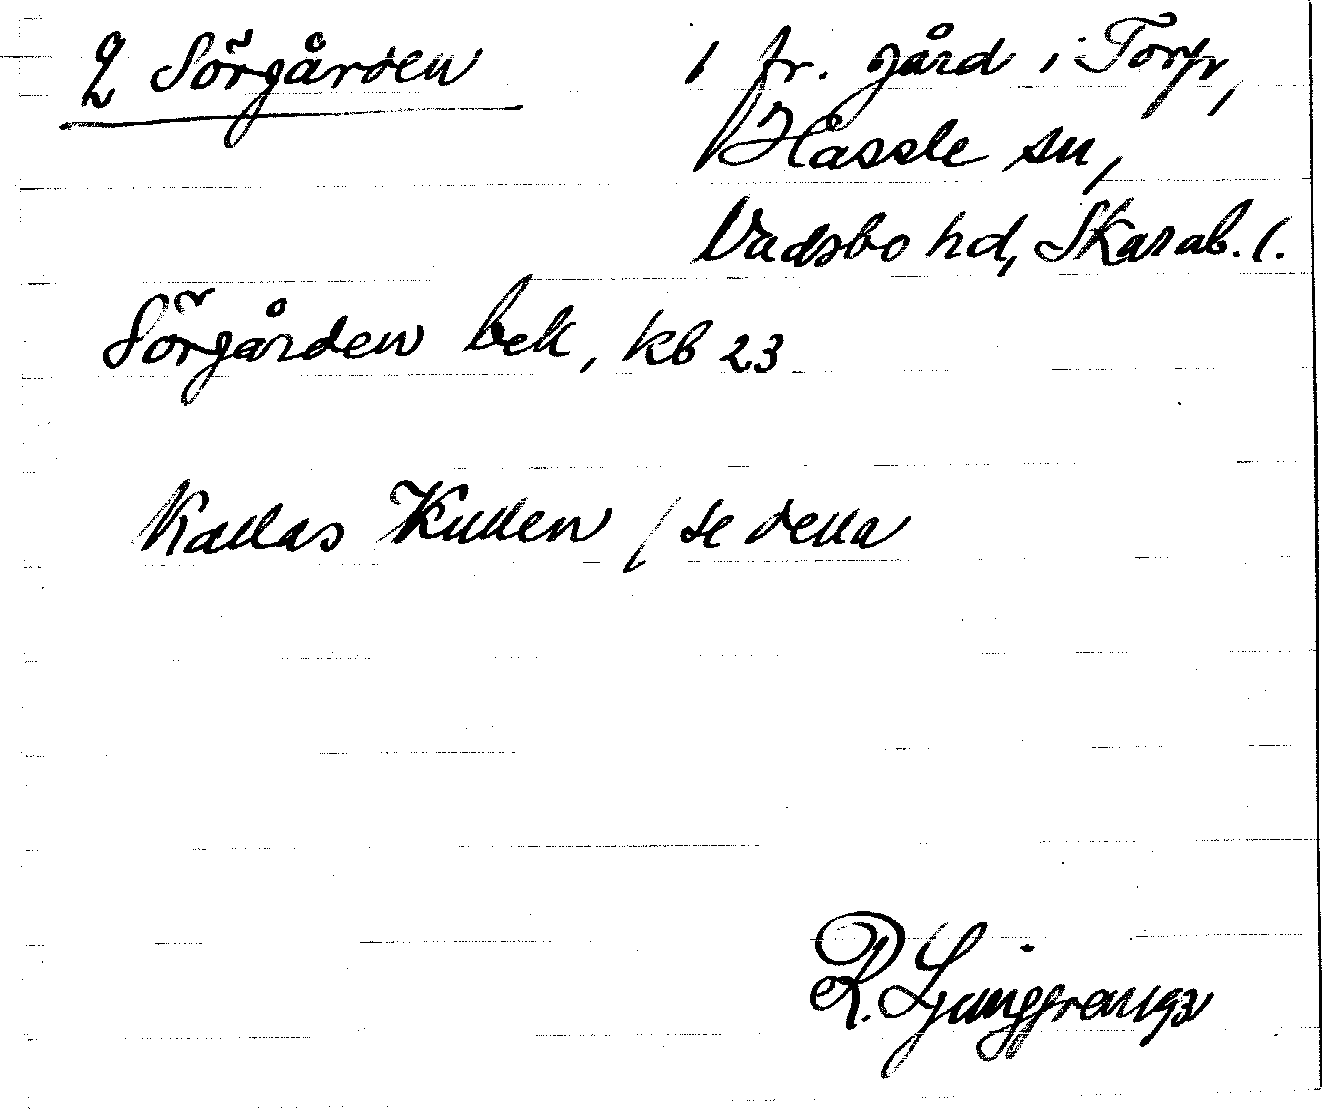 2 Sörgården
1 fr. gård i Torp,
Hassle sn,
Vadsbo hd, Skarab. l.
Sörgården bek, kb 23
Kallas Kullen / se detta
R. Ljunggren 1923